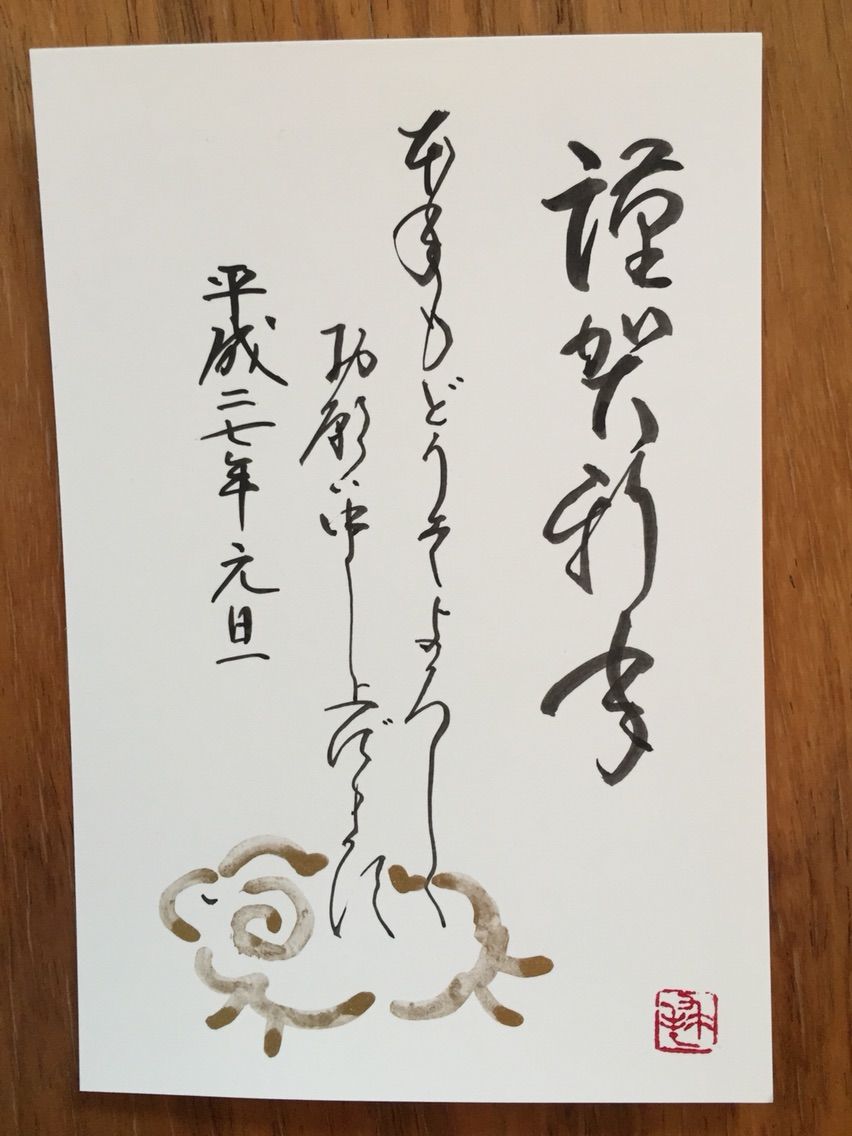 謹賀新年
本年もどうぞよろしく
お願い申し上げます
平成二七年元旦